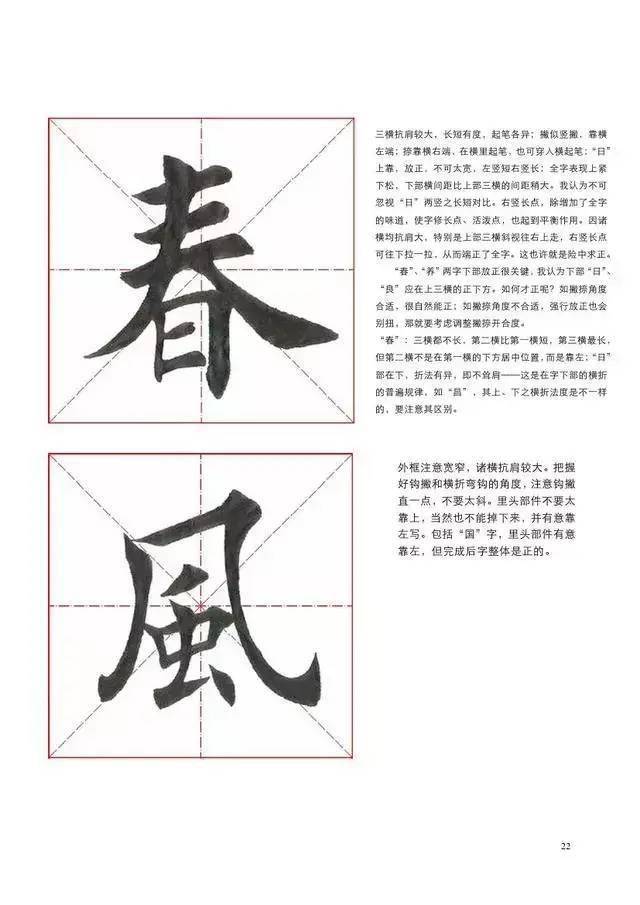 春
三横抗肩较大，长短有度，起笔各异；撇似竖撇，靠横
左端；捺靠横右端，在横里起笔，也可穿入横起笔；“日”
上靠，放正，不可太宽，左竖短右竖长；全字表现上紧
下松，下部横间距比上部三横的间距稍大。我认为不可
忽视“日”两竖之长短对比。右竖长点，除增加了全字
的味道，使字修长点、活泼点，也起到平衡作用。因诸
横均抗肩大，特别是上部三横斜视往右上走，右竖长点
可往下拉一拉，从而端正了全字。这也许就是险中求正。
“春”、“养”两字下部放正很关键，我认为下部“日”、
“良”应在上三横的正下方。如何才正呢？如撇捺角度
合适，很自然能正；如撇捺角度不合适，强行放正也会
别扭，那就要考虑调整撇捺开合度。
“春”：三横都不长，第二横比第一横短，第三横最长，
但第二横不是在第一横的下方居中位置，而是靠左；“日”
部在下，折法有异，即不耸肩——这是在字下部的横折
的普遍规律，如“昌”，其上、下之横折法度是不一样
的，要注意其区别。
風
外框注意宽窄，诸横抗肩较大。把握
好钩撇和横折弯钩的角度，注意钩撇
直一点，不要太斜。里头部件不要太
靠上，当然也不能掉下来，并有意靠
左写。包括“国”字，里头部件有意
靠左，但完成后字整体是正的。
22